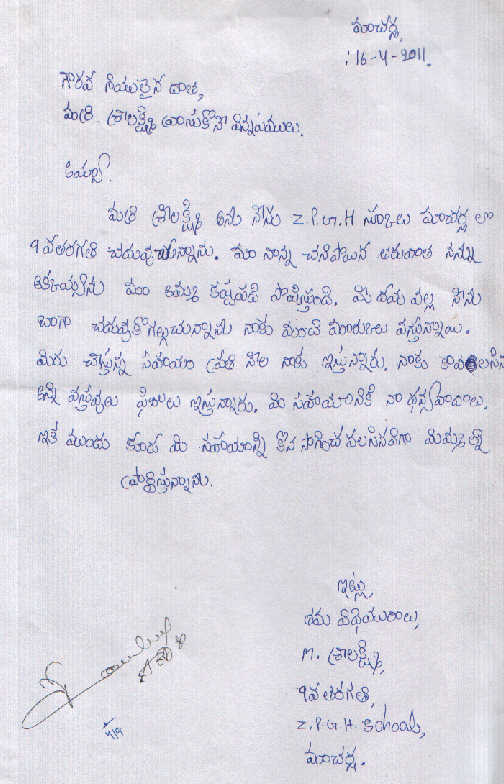 మాచర్ల,
: 16-4-2011.
గౌరవ నీయులైన దాత,
మల్లె శ్రీలక్ష్మి వ్రాసుకొనే విన్నపములు.
అయ్యా!
మల్లె శ్రీలక్ష్మి అను నేను Z.P.G.H స్కూలు మాచర్ల లో
9వతరగతి చదువుచున్నాను. మా నాన్న చనిపోయిన తరువాత నన్ను
మా అమ్మ కష్టపడి పోషిస్తుంది. మీ దయ వల్ల నేను
బాగా చదువుకోగల్గుచున్నాను నాకు మంచి మార్కులు వస్తున్నాయి.
మీరు చేస్తున్న సహాయం ప్రతి నెల నాకు ఇస్తున్నారు. నాకు కావలసిన
అన్ని వస్తువులు ఫీజులు ఇస్తున్నారు. మీ సహాయానికి నా ధన్యవాదాలు.
ఇక ముందు కూడా మీ సహాయాన్ని కొన సాగించ వలసినదిగా మిమ్మల్ని
ప్రార్థిస్తున్నాను.
ఇట్లు,
తమ విధేయురాలు,
M. శ్రీలక్ష్మి,
9వ తరగతి,
Z.P.G.H. మాచర్ల.